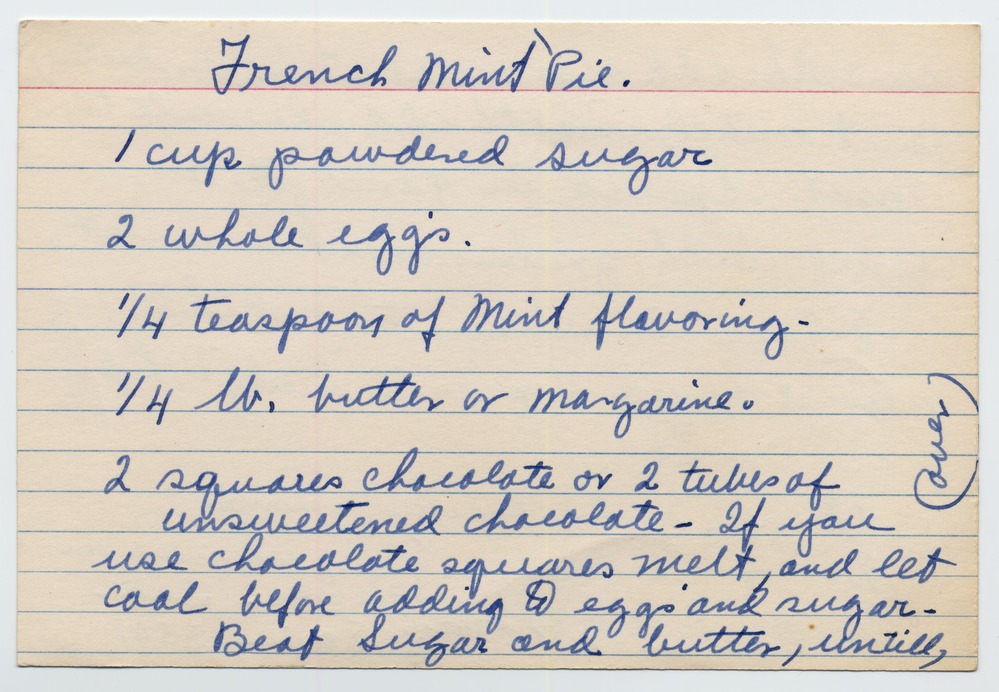 French Mint Pie.
1 cup powdered sugar
2 whole eggs.
1/4 teaspoon of Mint flavoring-
1/4 lb. butter or margarine.
(over)
2 squares chocolate or 2 tubes of
unsweetened chocolate - If you
use chocolate squares melt, and let
cool before adding to eggs and sugar-
Beat Sugar and butter, untill,